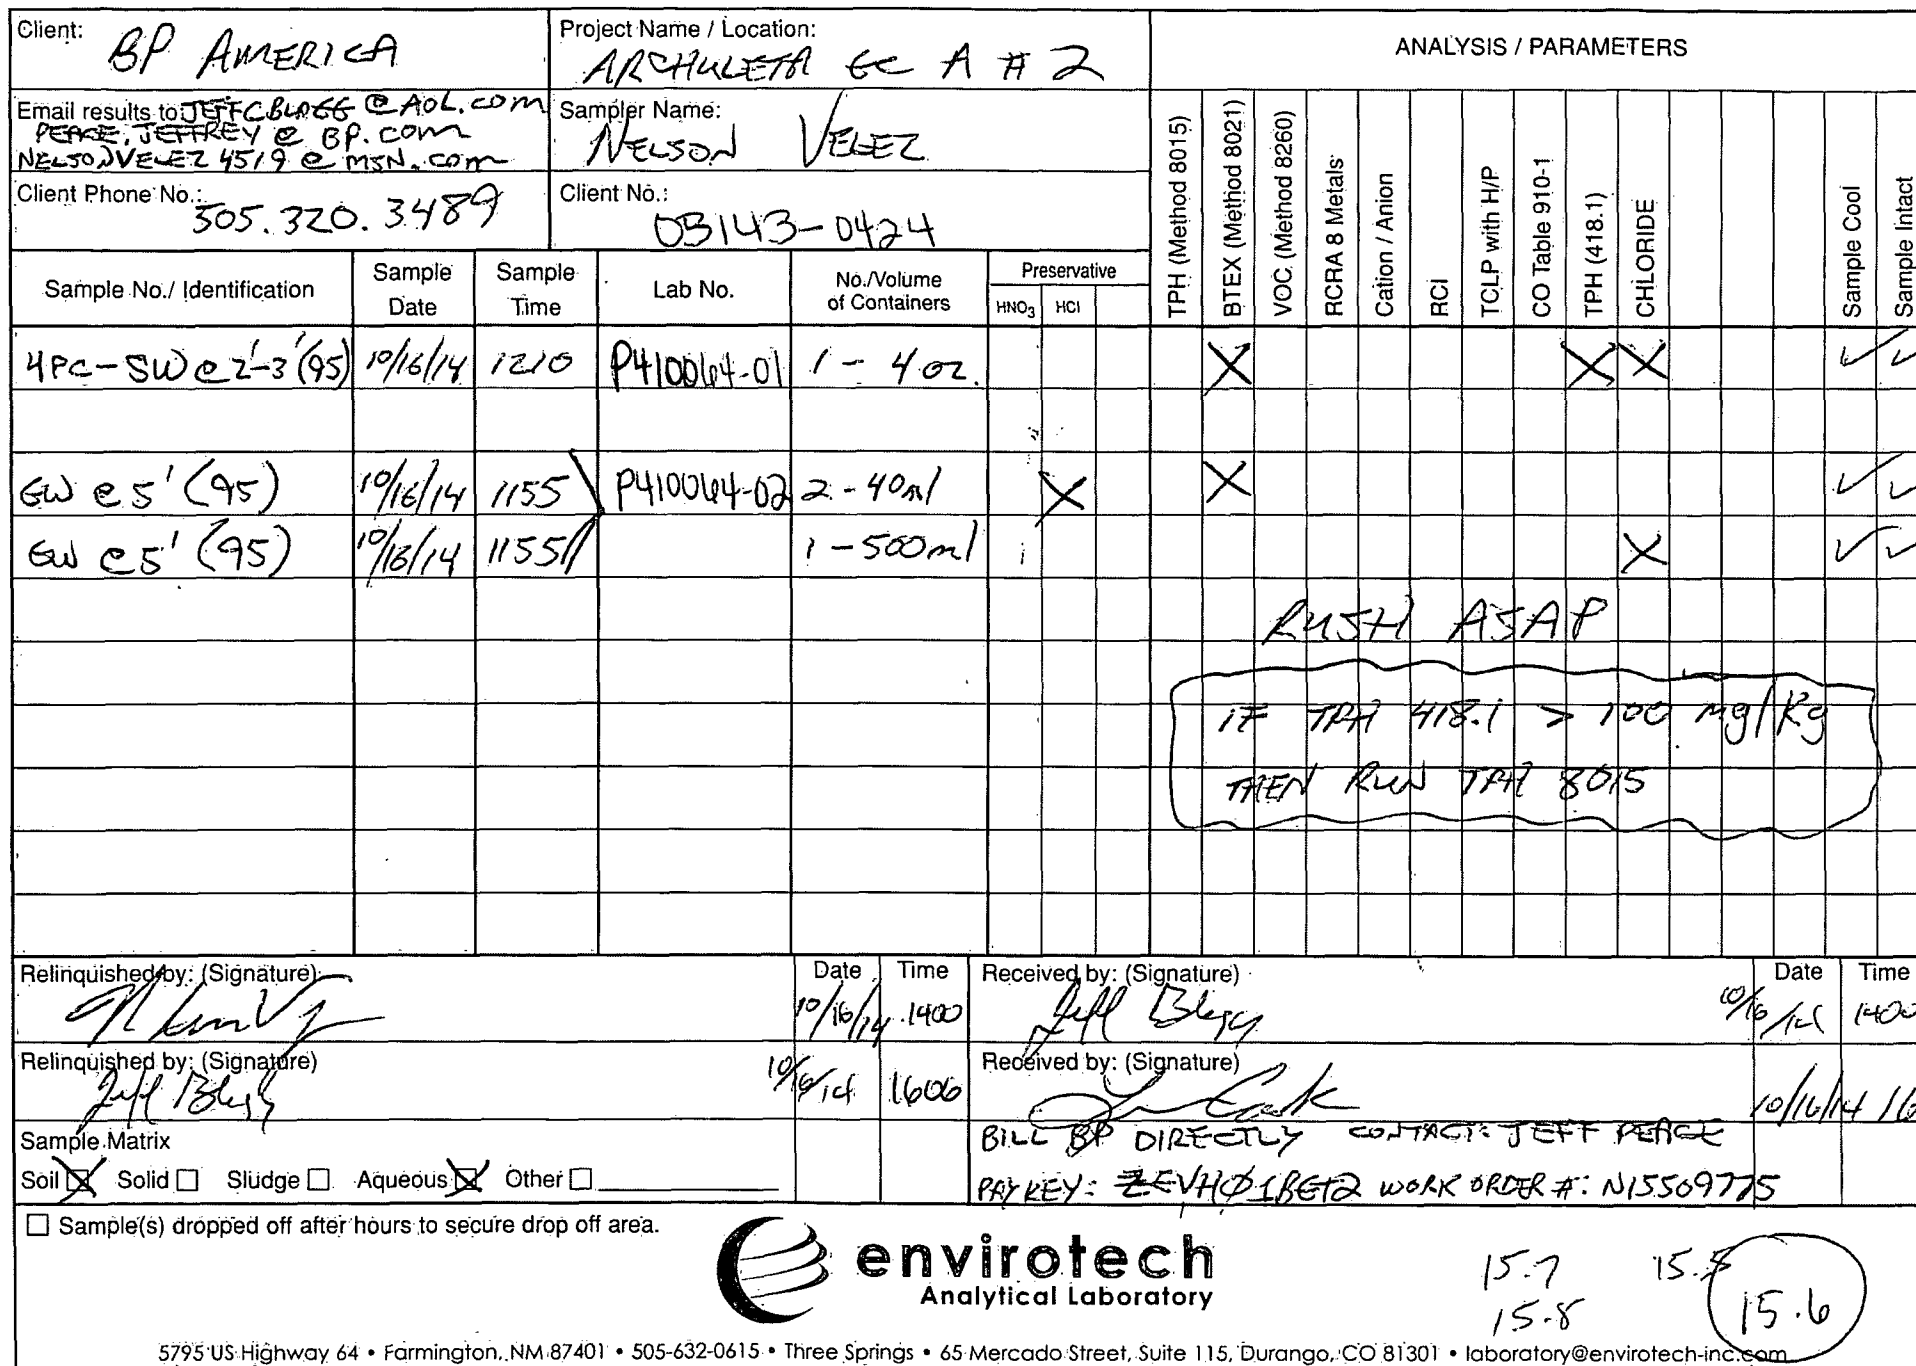 Client: BP AMERICA
Project Name / Location: ARCHULETA GC A # 2
ANALYSIS / PARAMETERS
Email results to: JEFFCBLAGG @ AOL.com
PEACE.JEFFREY @ BP.com
NELSONVELEZ 4519 @ MSN.com
Sampler Name: NELSON VELEZ
Client Phone No.: 505.320.3489
Client No.: 03143-0424
Sample No./ Identification
Sample Date
Sample Time
Lab No.
No./Volume of Containers
Preservative
HNO3 HCl
TPH (Method 8015)
BTEX (Method 8021)
VOC (Method 8260)
RCRA 8 Metals
Cation / Anion
RCI
TCLP with H/P
CO Table 910-1
TPH (418.1)
CHLORIDE
Sample Cool
Sample Intact
4PC-SW @ 2'-3' (95) 10/16/14 1210 P410064-01 1 - 4 oz. X X X ✓ ✓
GW @ 5' (95) 10/16/14 1155 P410064-02 2 - 40ml X X ✓ ✓
GW @ 5' (95) 10/16/14 1155 1 - 500ml X ✓ ✓
RUSH ASAP
IF TPH 418.1 > 100 mg/Kg
THEN RUN TPH 8015
Relinquished by: (Signature)
Date Time
10/16/14 1400
Received by: (Signature) Jeff Blagg
Date Time
10/16/14 1400
Relinquished by: (Signature) Jeff Blagg
10/16/14 1606
Received by: (Signature)
10/16/14 16
Sample Matrix
Soil X Solid □ Sludge □ Aqueous X Other □
BILL BP DIRECTLY CONTACT: JEFF PEACE
PAYKEY: ZEVHØ1BET2 WORK ORDER #: N15509775
□ Sample(s) dropped off after hours to secure drop off area.
envirotech
Analytical Laboratory
15.7
15.8
15.6
5795 US Highway 64 • Farmington, NM 87401 • 505-632-0615 • Three Springs • 65 Mercado Street, Suite 115, Durango, CO 81301 • laboratory@envirotech-inc.com